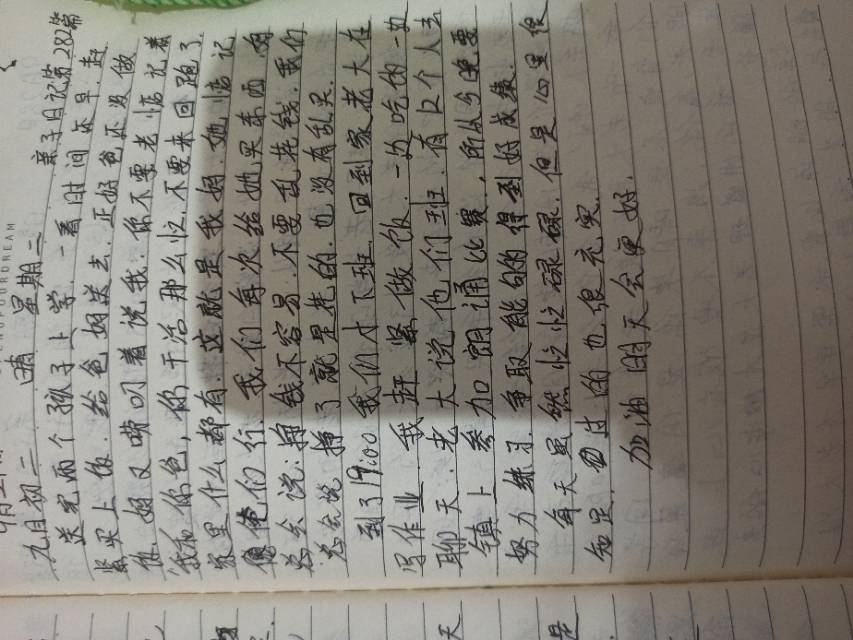 NG YOUR DREAM
九月初二 晴 星期二 亲子日记第282篇
送完两个孩子上学.一看时间还早赶
紧买上饭.给爸妈送去.正好爸还没做
饭.妈又唠叨着说我.你不要老惦记着
我和你爸,你干活那么忙.不要来回跑了.
家里什么都有.这就是我妈.她惦记
使们行.我们每次给她买东西.妈
总会说:挣钱不容易.不要乱花钱.我们
总会说挣了就是花的.也没有乱买.
到了19:00我们才下班.回到家老大在
写作业.我赶紧做饭.一边吃的一边
聊天.老大说他们班.有12个人去
镇上参加朗诵比赛,所以今晚要
努力练习.争取能够得到好成绩.
每天虽然忙忙碌碌.但是心里很
知足.过的也很充实.
加油明天会更好.
天
是